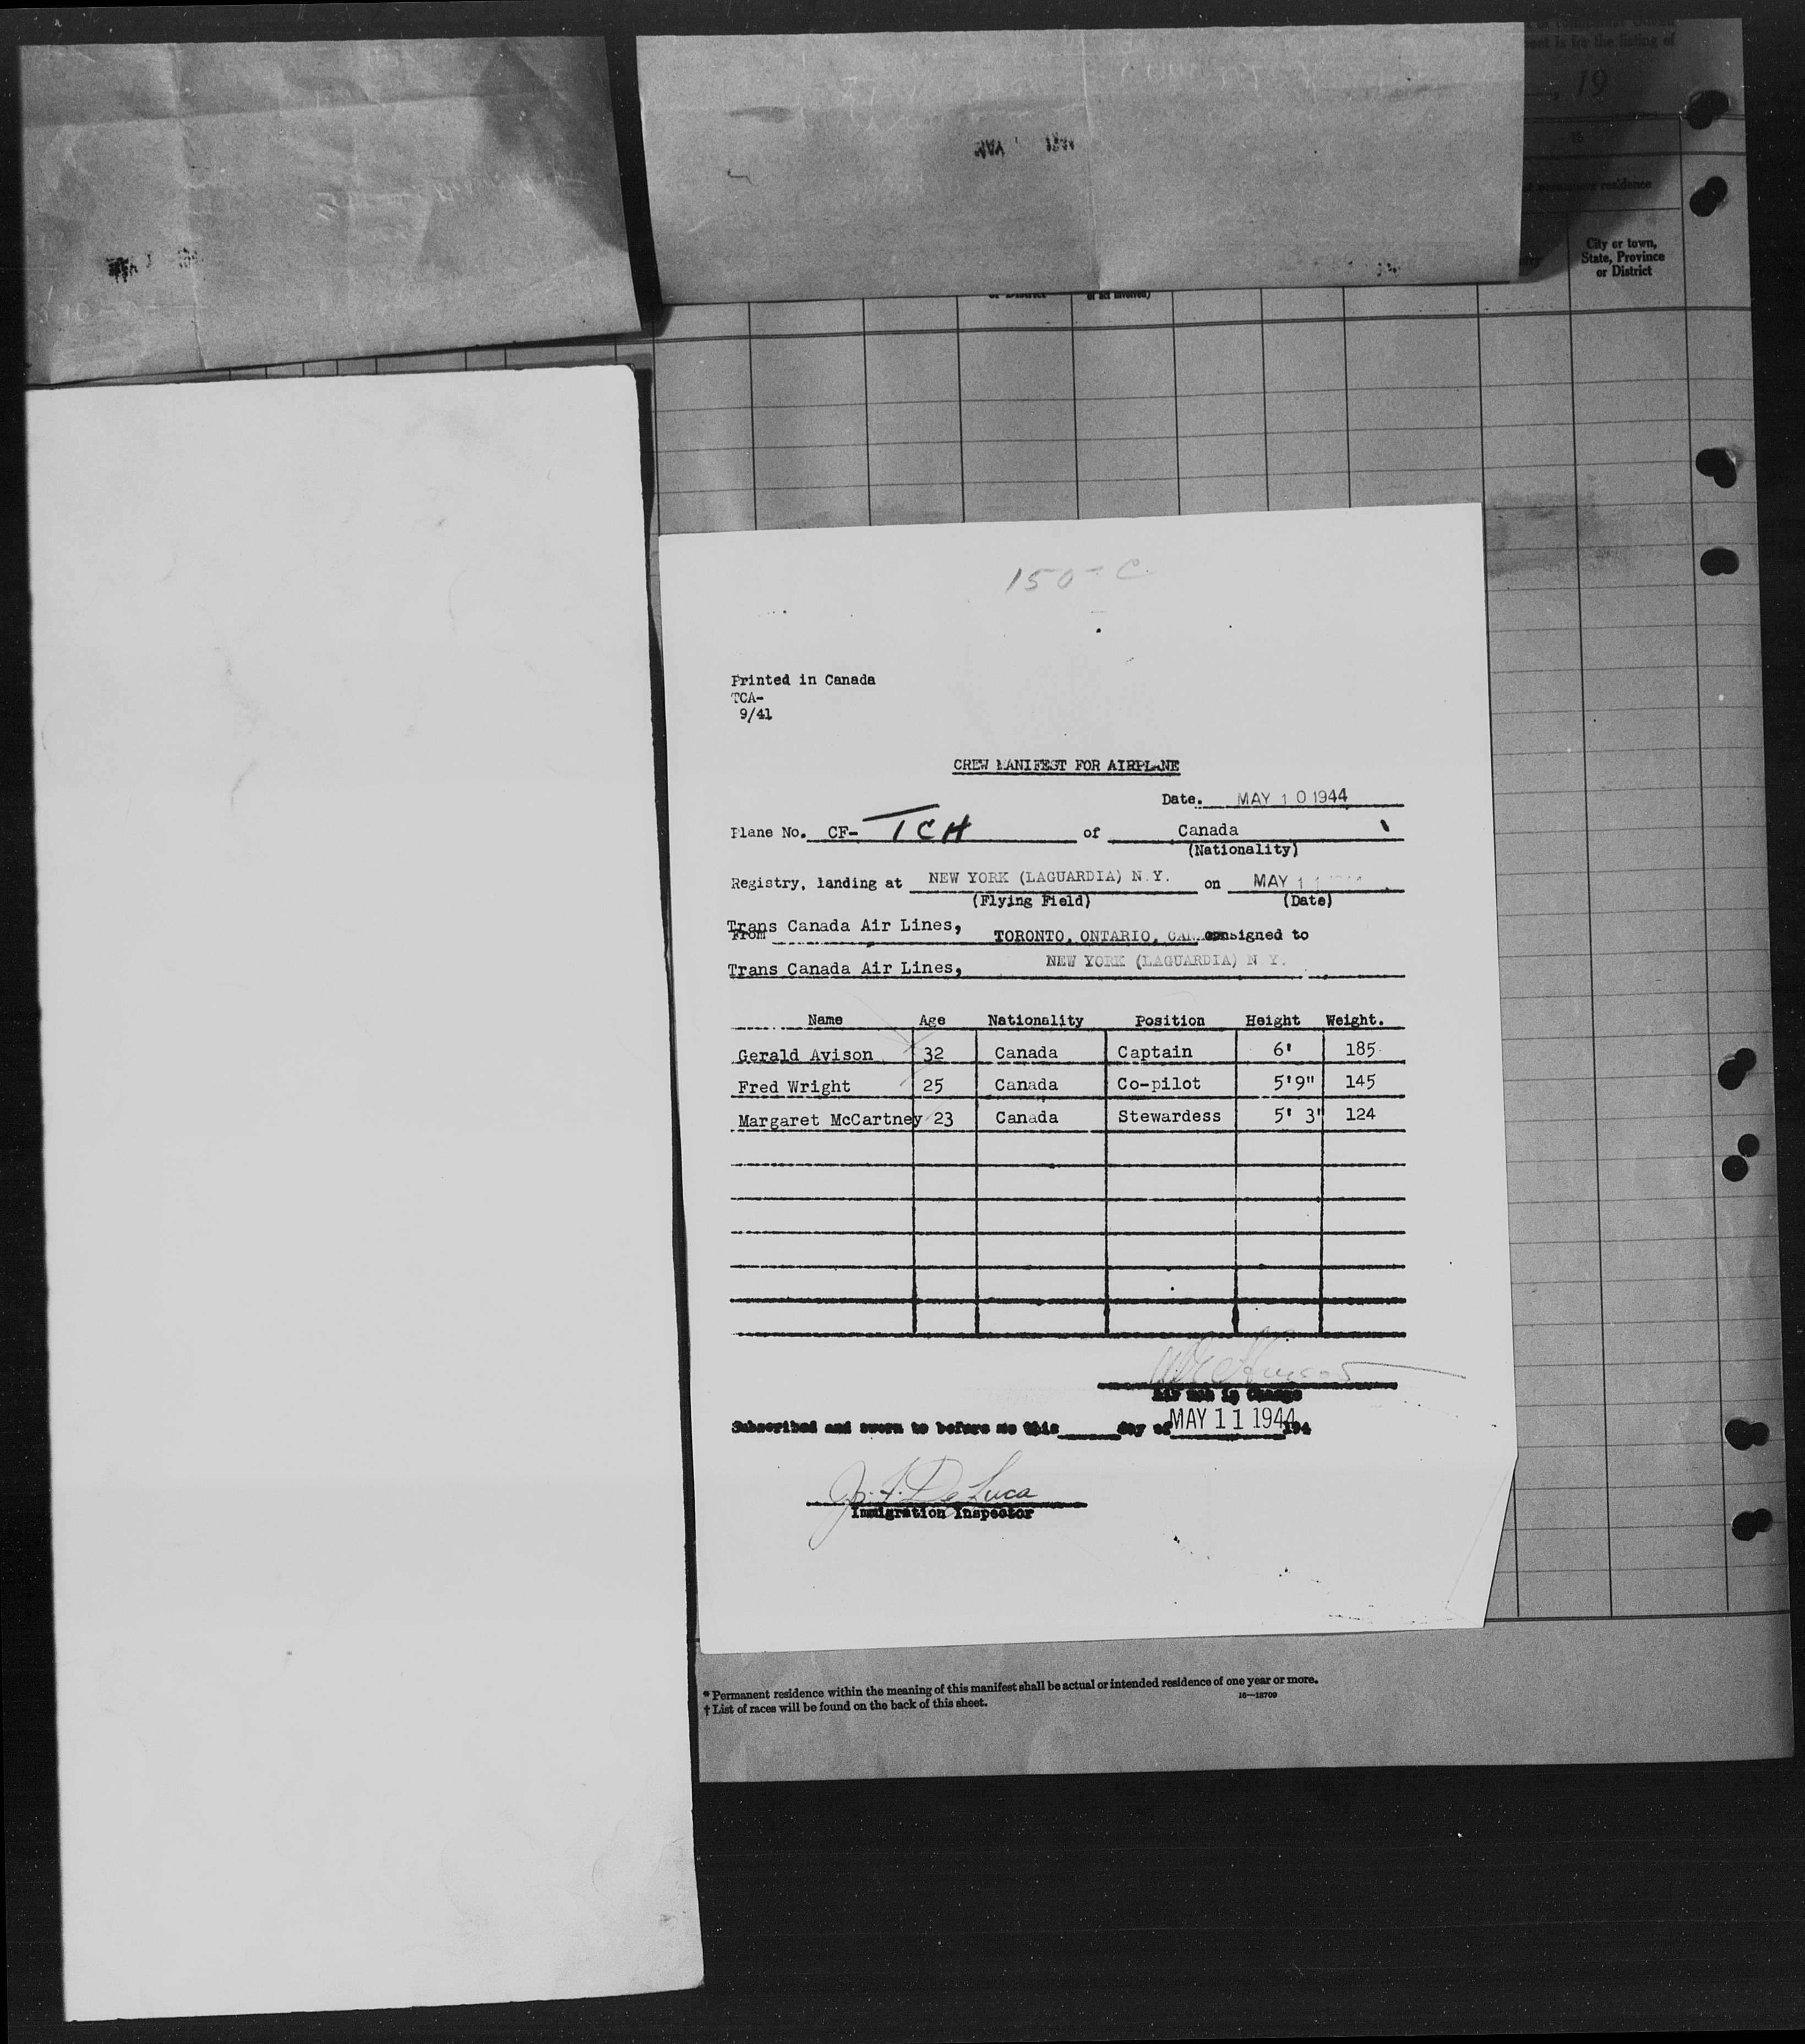 sheet is for the listing of
19
16
permanent residence
City or town,
State, Province
or District
MAY
or District
150-C
Printed in Canada
TCA-
9/41
CREW MANIFEST FOR AIRPLANE
Date. MAY 10 1944
Plane No. CF- TCH of Canada
(Nationality)
Registry, landing at NEW YORK (LAGUARDIA) N.Y. on MAY 11
(Flying Field) (Date)
Trans Canada Air Lines,
From TORONTO, ONTARIO, consigned to
Trans Canada Air Lines, NEW YORK (LAGUARDIA) N.Y.
Name Age Nationality Position Height Weight.
Gerald Avison 32 Canada Captain 6' 185
Fred Wright 25 Canada Co-pilot 5'9" 145
Margaret McCartney 23 Canada Stewardess 5' 3" 124
Air man in Charge
Subscribed and sworn to before me this day of MAY 11 1944 194
De Luca
Immigration Inspector
* Permanent residence within the meaning of this manifest shall be actual or intended residence of one year or more.
† List of races will be found on the back of this sheet. 16—18709